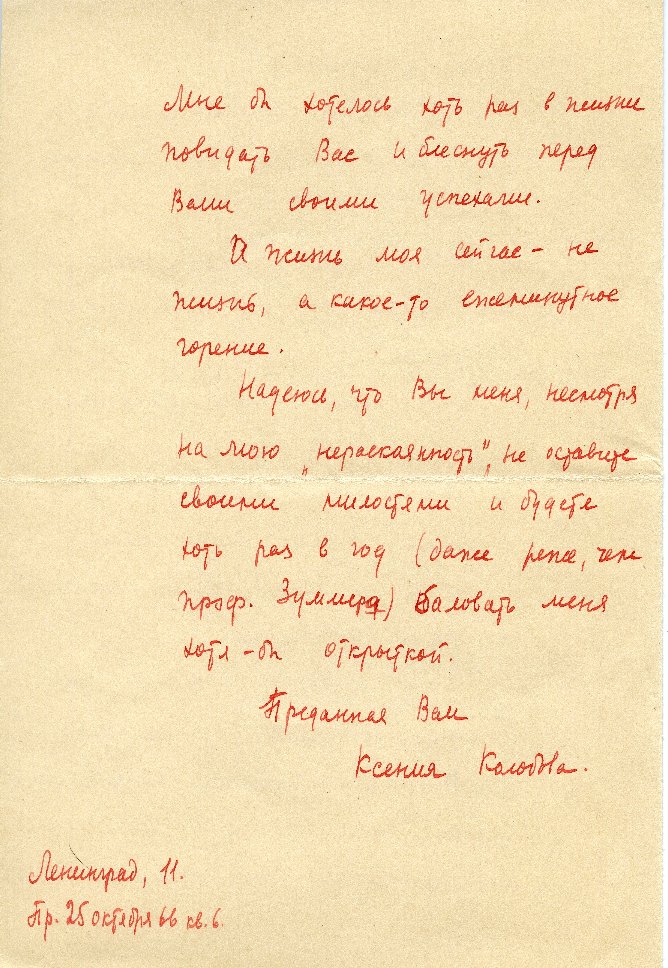 Мне бы хотелось хоть раз в жизни
повидать Вас и блеснуть перед
Вами своими успехами.
И жизнь моя сейчас – не
жизнь, а какое-то ежеминутное
горение.
Надеюсь, что Вы меня, несмотря
на мою „нераскаянность", не оставите
своими милостями и будете
хоть раз в год (даже реже, чем
проф. Зуммера) баловать меня
хотя-бы открыткой.
Преданная Вам
Ксения Колобова.
Ленинград, 11.
Пр. 25 октября 66 кв. 6.